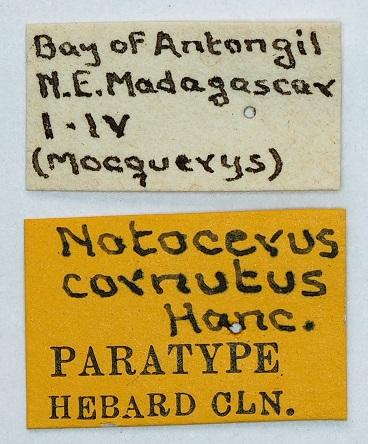 Bay of Antongil
N.E. Madagascar
I-IV
(Mocquerys)
Notocerus
cornutus
Hanc.
PARATYPE
HEBARD CLN.